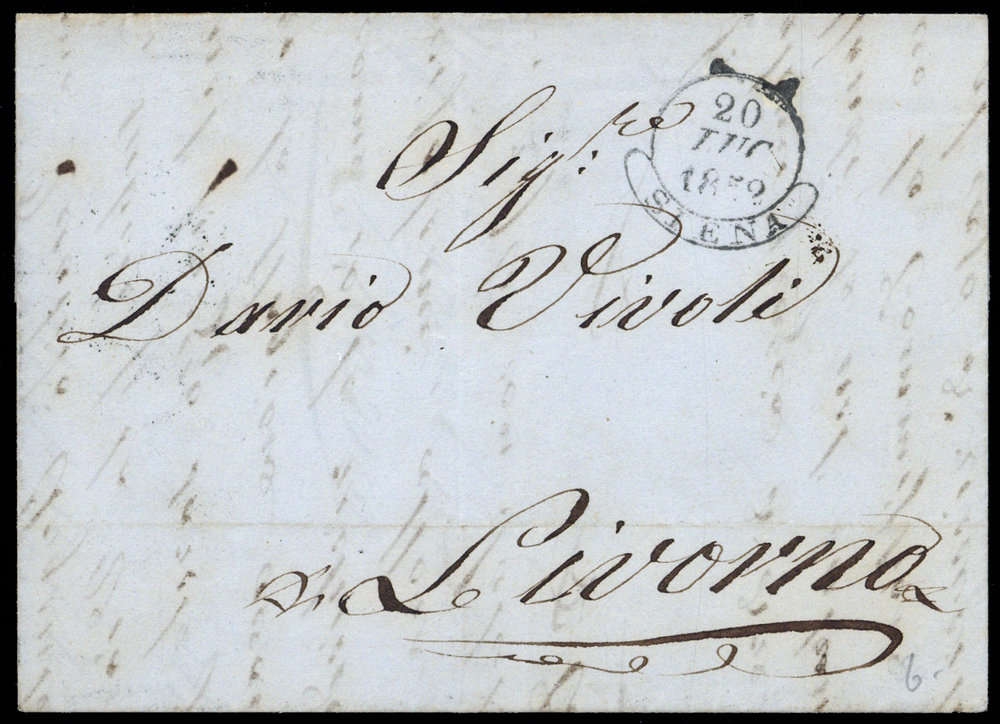 20
LUG
1859
SIENA
Sig.re
Dario Vivoli
Livorno
6-